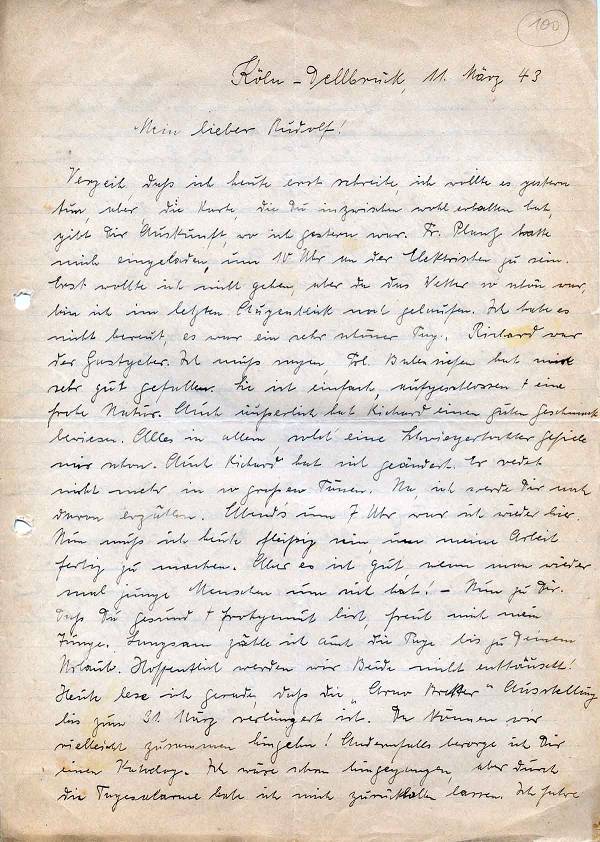 100
Köln - Dellbrück, 11. März 43
Mein lieber Rudolf!
Verzeih, daß ich heute erst schreibe, ich wollte es gestern
tun, aber, die Karte, die Du inzwischen wohl erhalten hast,
gibt Dir Auskunft, wo ich gestern war. Fr. hatte
mich eingeladen, um 10 Uhr an der Elektrischen zu sein.
Erst wollte ich nicht gehen, aber da das Wetter so schön war,
bin ich im letzten Augenblick noch gelaufen. Ich habe es
nicht bereut, es war ein sehr schöner Tag. Richard war
der Gastgeber. Ich muß sagen, Frl. hat mir
sehr gut gefallen. Sie ist einfach, aufgeschlossen + eine
frohe Natur. Auch äußerlich hat Richard einen guten Geschmack
bewiesen. Alles in allem, solch eine Schwiegertochter gefiele
mir schon. Auch Richard hat sich geändert. Er redet
nicht mehr in so großen Tönen. Na, ich werde Dir noch
davon erzählen. Abends um 7 Uhr war ich wieder hier.
Nun muß ich heute fleißig sein, um meine Arbeit
fertig zu machen. Aber es ist gut, wenn man wieder
mal junge Menschen um sich hat! - Nun zu Dir.
Daß Du gesund + frohgemut bist, freut mich mein
Junge. Langsam zähle ich auch die Tage bis zu Deinem
Urlaub. Hoffentlich werden wir Beide nicht enttäuscht!
Heute lese ich gerade, daß die "Arno Breker" Ausstellung
bis zum 31. März verlängert ist. Da können wir
vielleicht zusammen hingehn! Andernfalls besorge ich Dir
einen Katalog. Ich wäre schon hingegangen, aber durch
die Tagesalarme habe ich mich zurückhalten lassen. Ich fahre